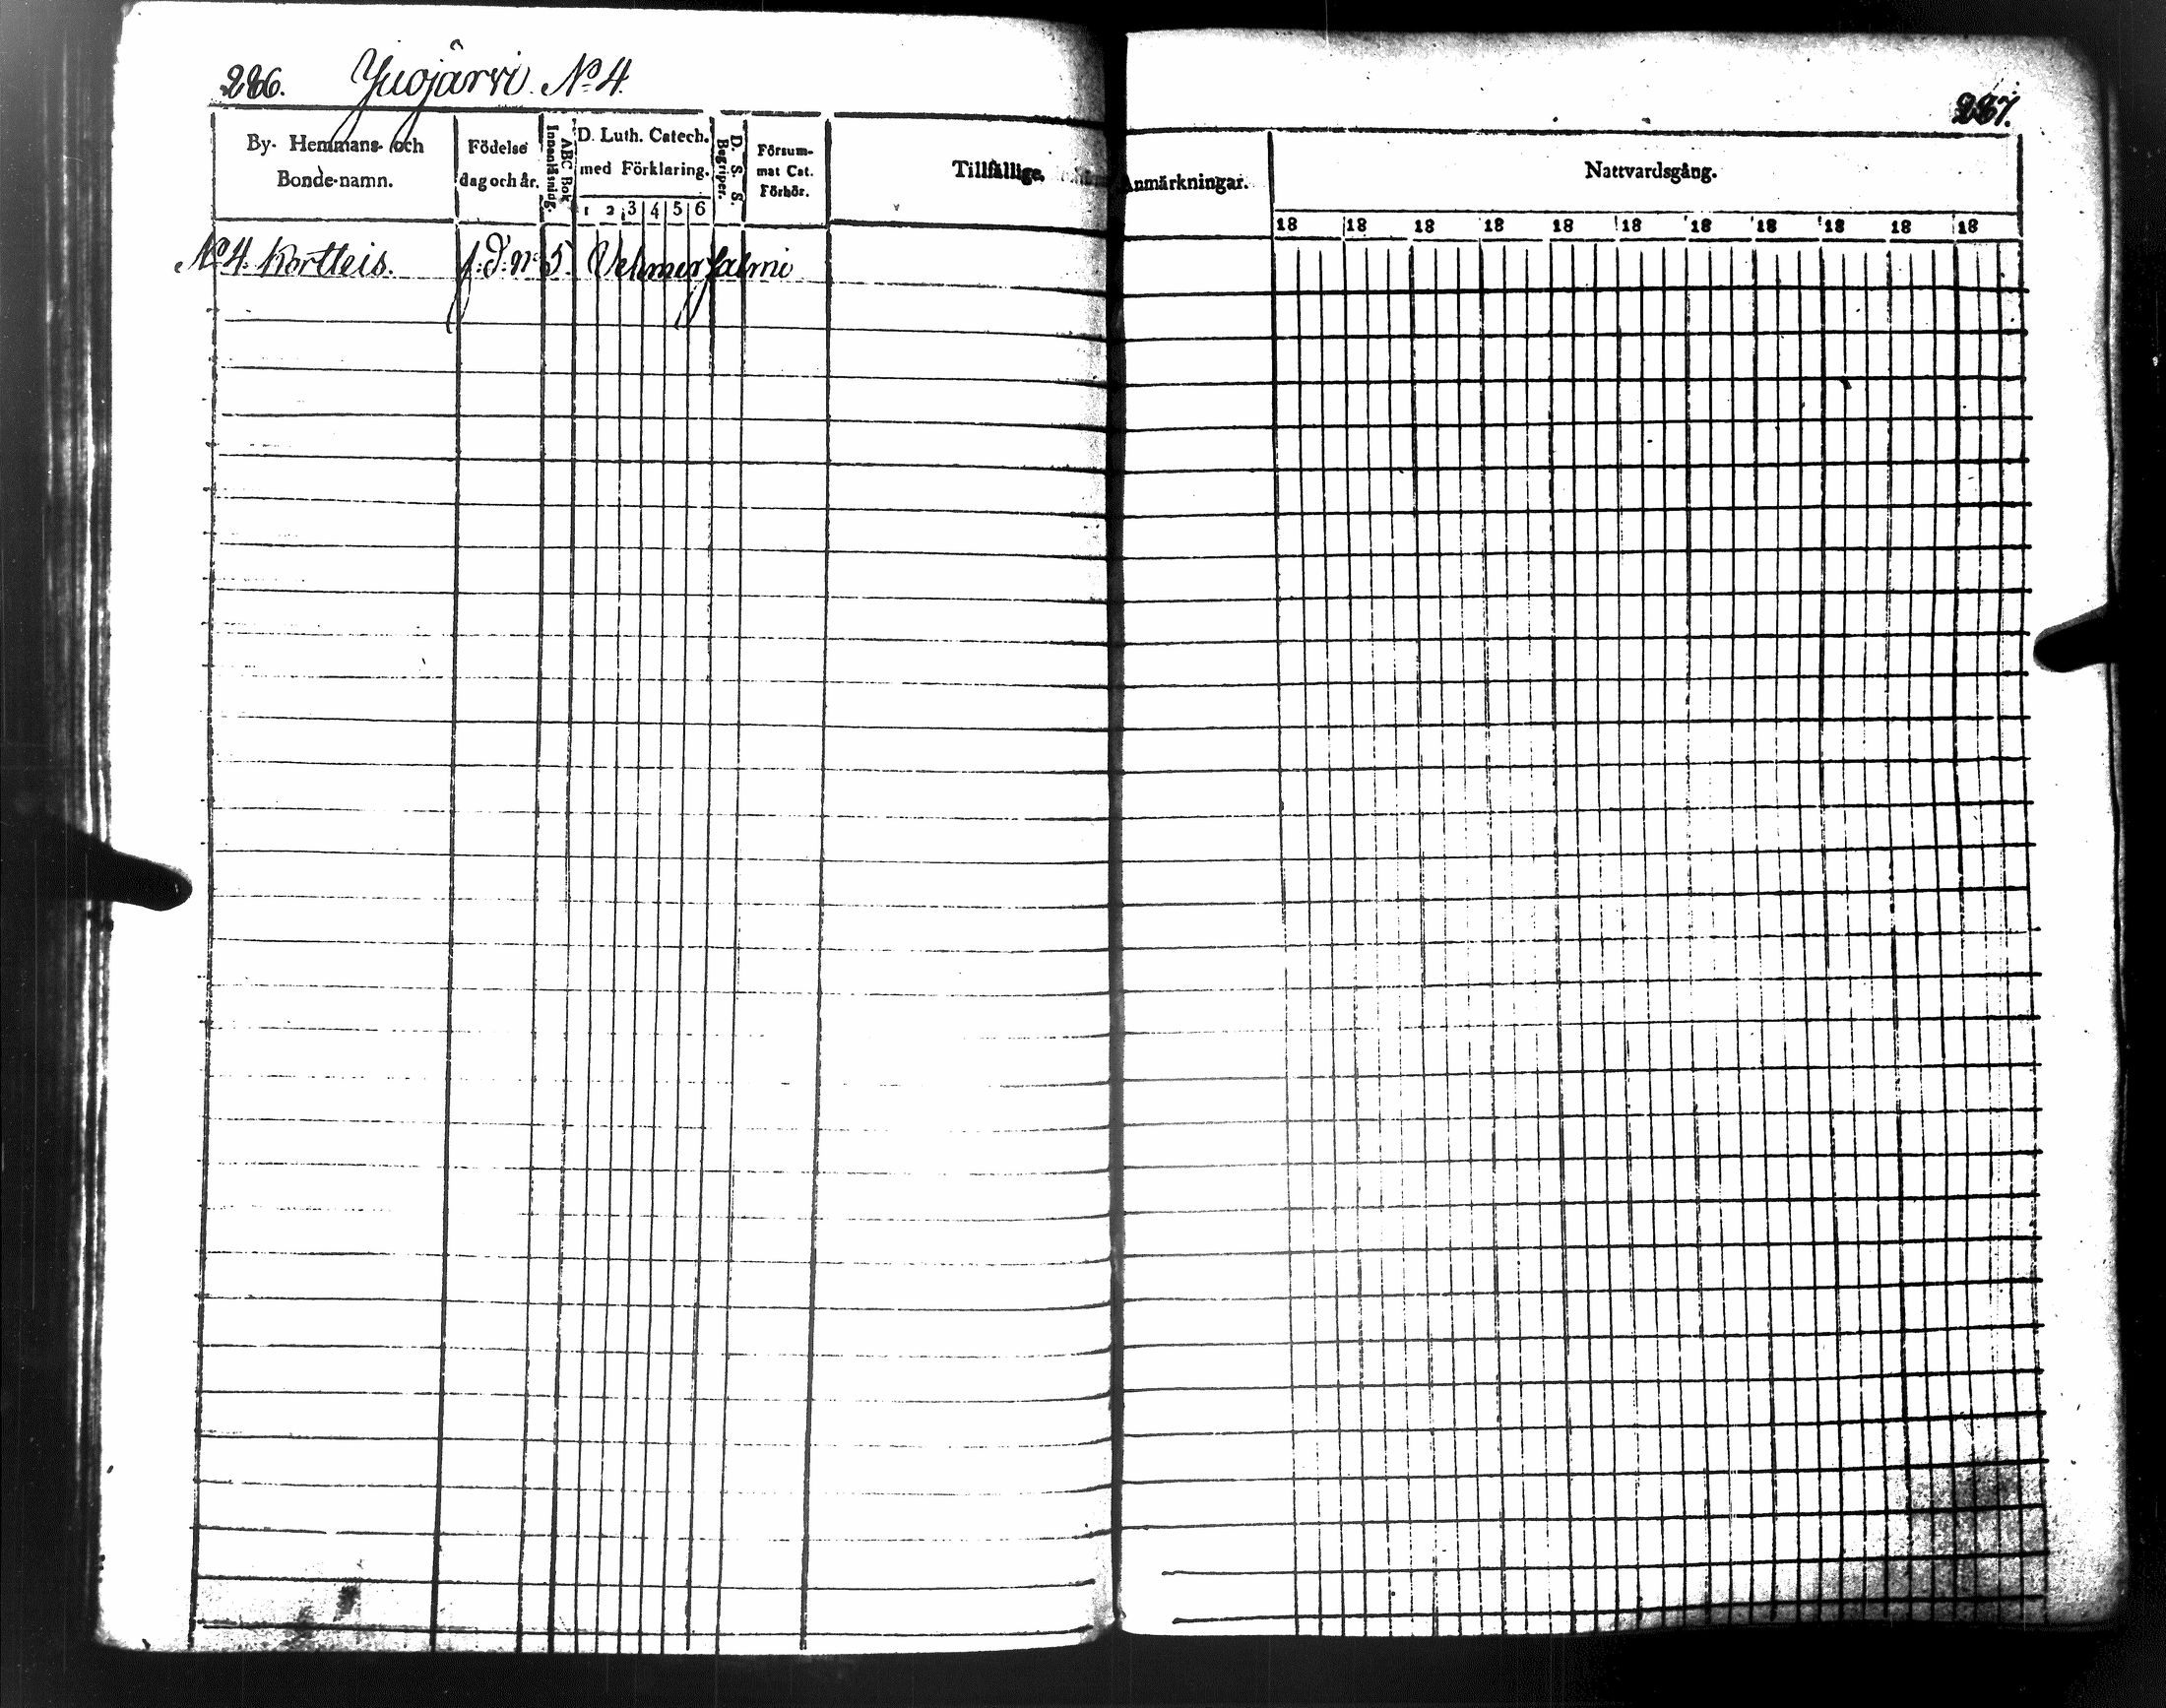 286. Juojärvi. No 4.
287.
By- Hemmans- och Bonde-namn.
Födelse dag och år.
ABC Bok Innanläsning.
D. Luth. Catech. med Förklaring.
1 2 3 4 5 6
D. S. S. Begriper.
Försum-
mat Cat.
Förhör.
Tillfällige Anmärkningar.
Nattvardsgång.
18 18 18 18 18 18 18 18 18 18 18
No 4. Kortteis. 5. Vehmersalmi